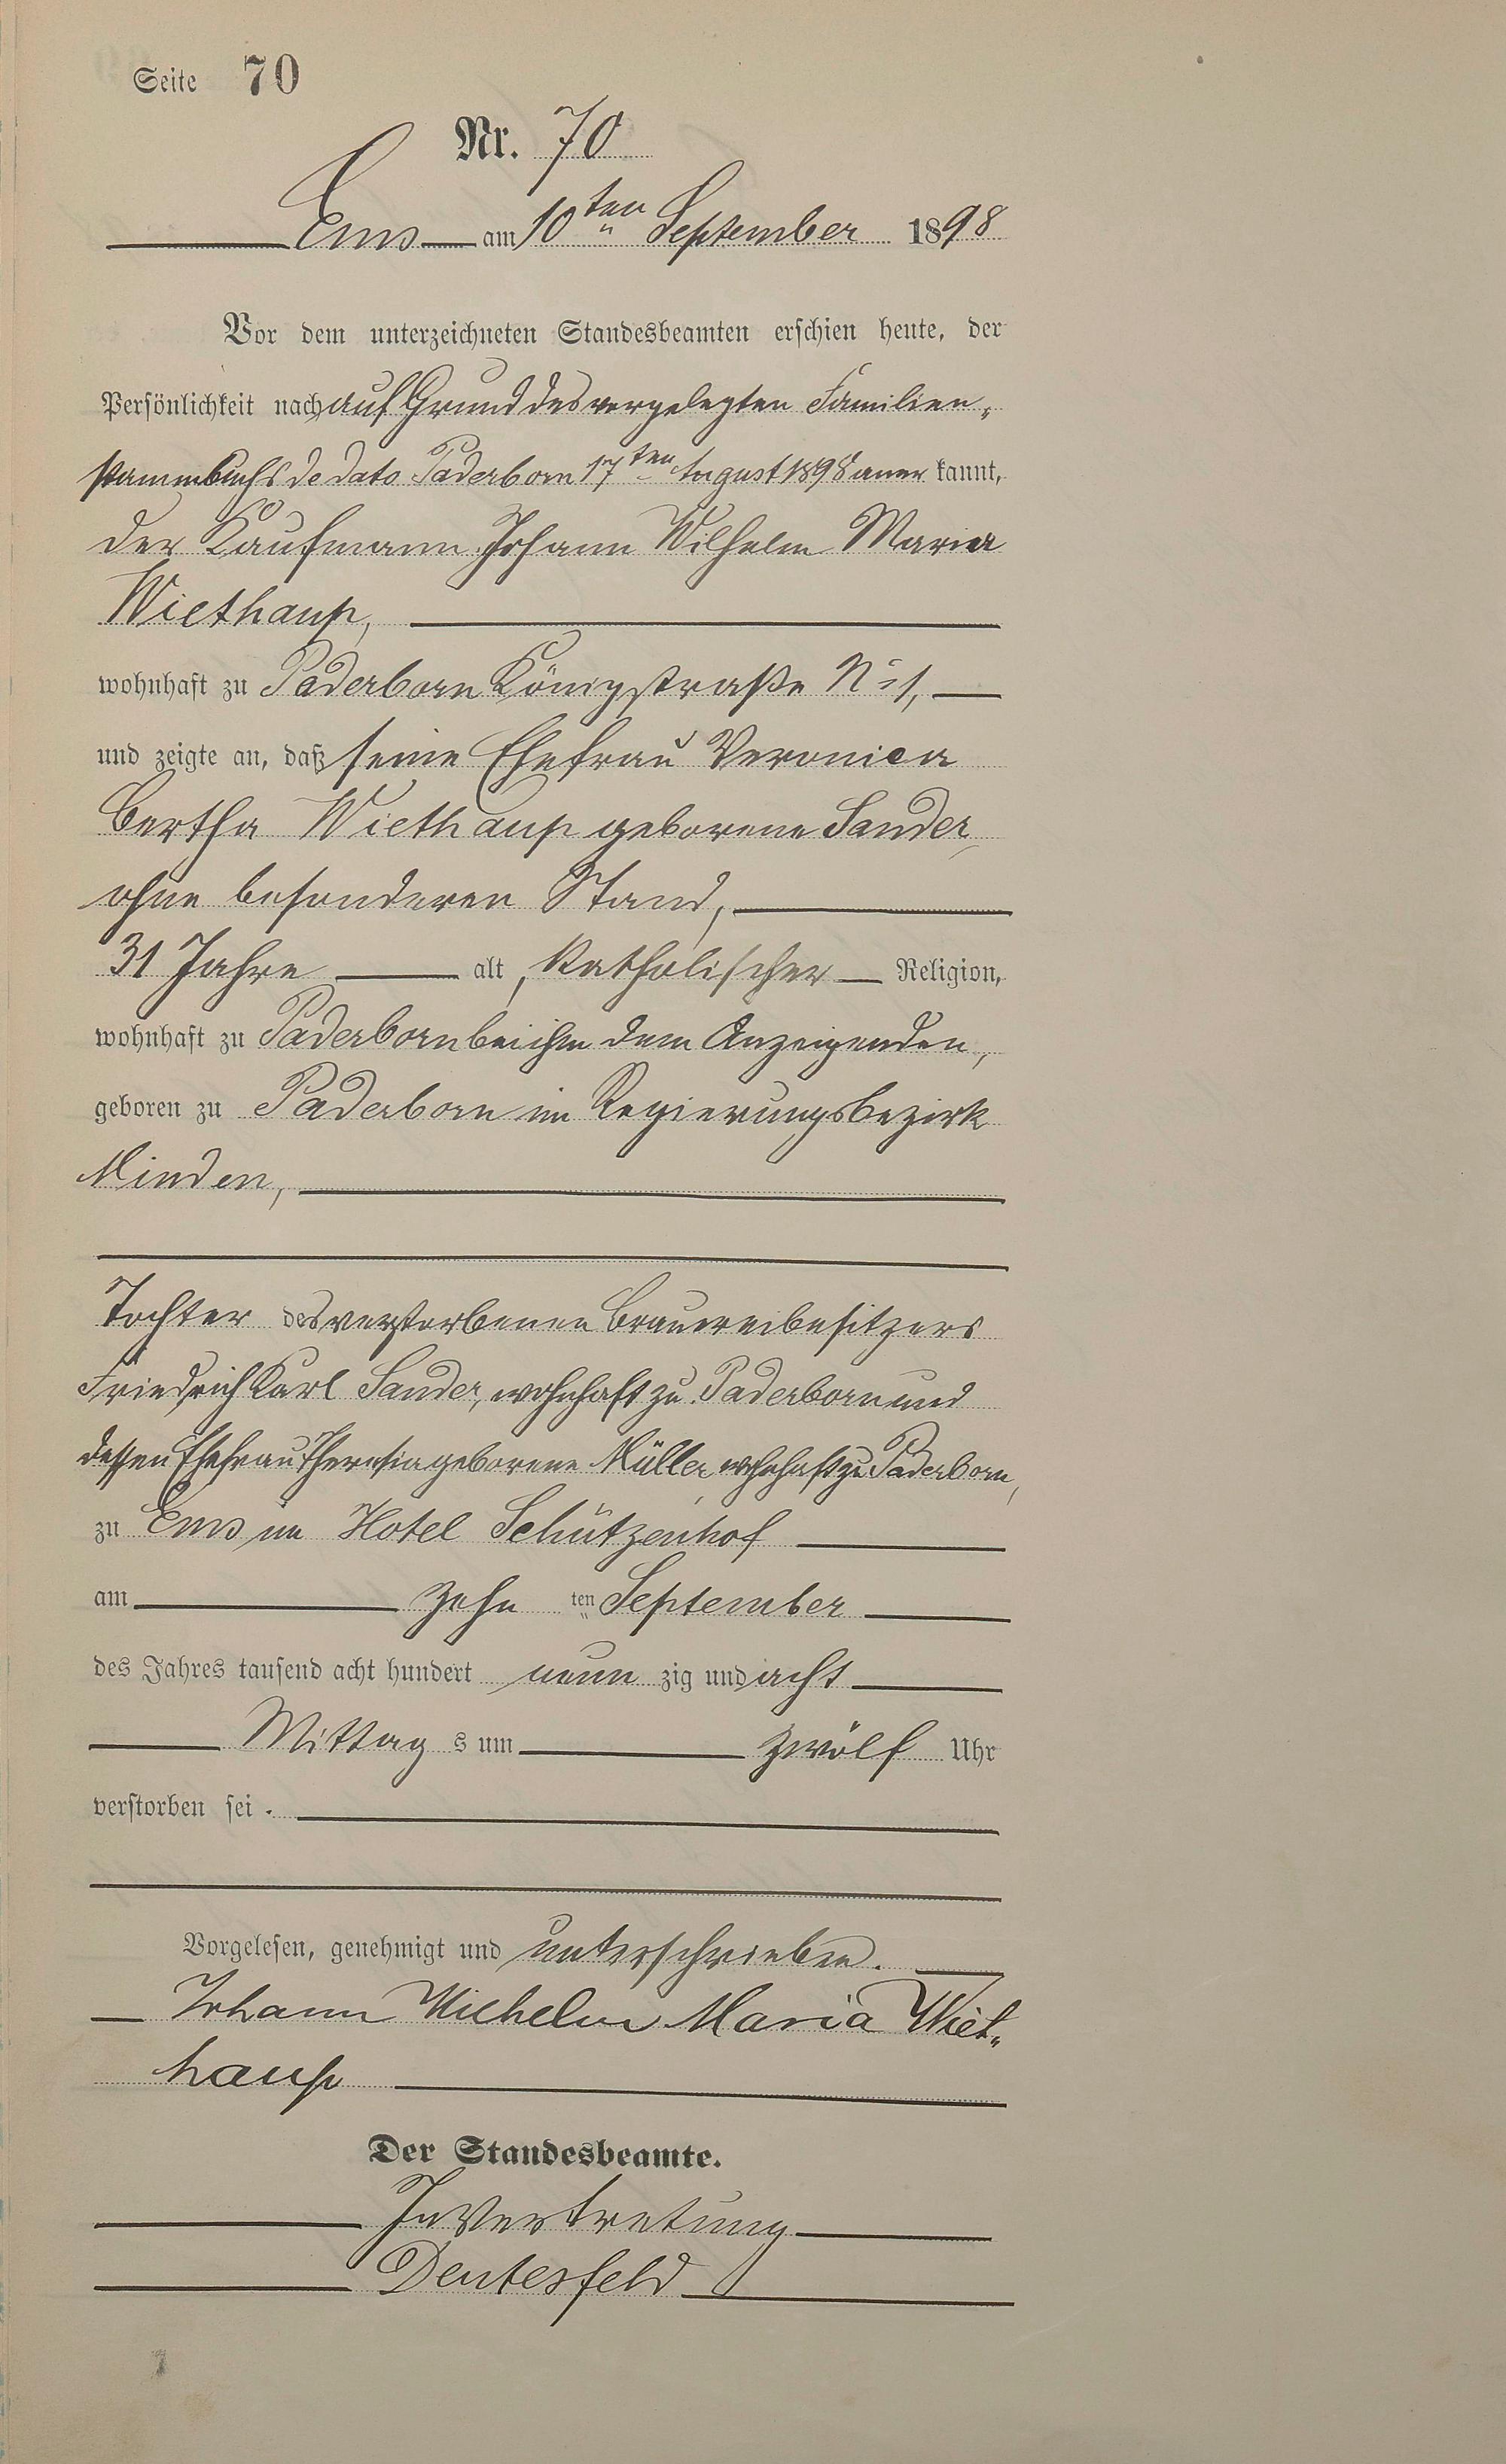 Seite 70
Nr. 70
Ems am 10ten September 1898
Vor dem unterzeichneten Standesbeamten erschien heute, der
Persönlichkeit nach auf Grund des vorgelegten Familien„
stammbuchs de dato Paderborn 17ten August 1898 aner kannt,
der Kaufmann Johann Wilhelm Maria
Wiethaup,
wohnhaft zu Paderborn Königstraße No 1,
und zeigte an, daß seine Ehefrau Veronica
Bertha Wiethaup geborene Sander,
ohne besonderen Stand,
31 Jahre alt, katholischer Religion,
wohnhaft zu Paderborn bei ihm dem Anzeigenden,
geboren zu Paderborn im Regierungsbezirk
Minden,
Tochter des verstorbenen Brauereibesitzers
Friedrich Karl Sander, wohnhaft zu Paderborn und
dessen Ehefrau Theresia geborene Müller, wohnhaft zu Paderborn,
zu Ems im Hotel Schützenhof
am zehn ten September
des Jahres tausend acht hundert neun zig und acht
Mittag s um zwölf Uhr
verstorben sei.
Vorgelesen, genehmigt und unterschrieben.
Johann Wilhelm Maria Wiet„
haup
Der Standesbeamte.
In Vertretung
Deutesfeld